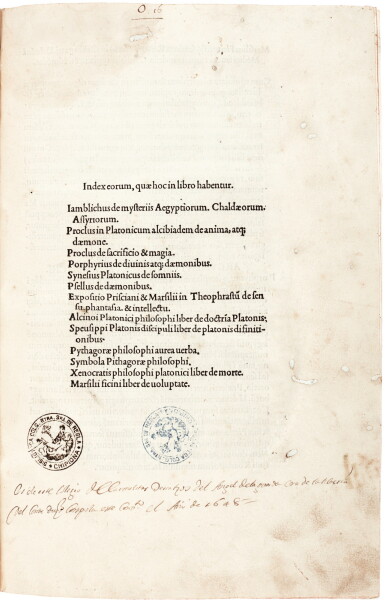 O 16
Index eorum, quæ hoc in libro habentur.
Iamblichus de mysteriis Aegyptiorum. Chaldæorum.
Assyriorum.
Proclus in Platonicum alcibiadem de anima, atq;
dæmone.
Proclus de sacrificio & magia.
Porphyrius de diuinis atq; dæmonibus.
Synesius Platonicus de somniis.
Psellus de dæmonibus.
Expositio Prisciani & Marsilii in Theophrastū de sen
su, phantasia, & intellectu.
Alcinoi Platonici philosophi liber de doctrīa Platonis.
Speusippi Platonis discipuli liber de platonis difiniti-
onibus.
Pythagoræ philosophi aurea uerba.
Symbola Pithagoræ philosophi.
Xenocratis philosophi platonici liber de morte.
Marsilii ficini liber de uoluptate.
CHIPIONA
del año de 1648